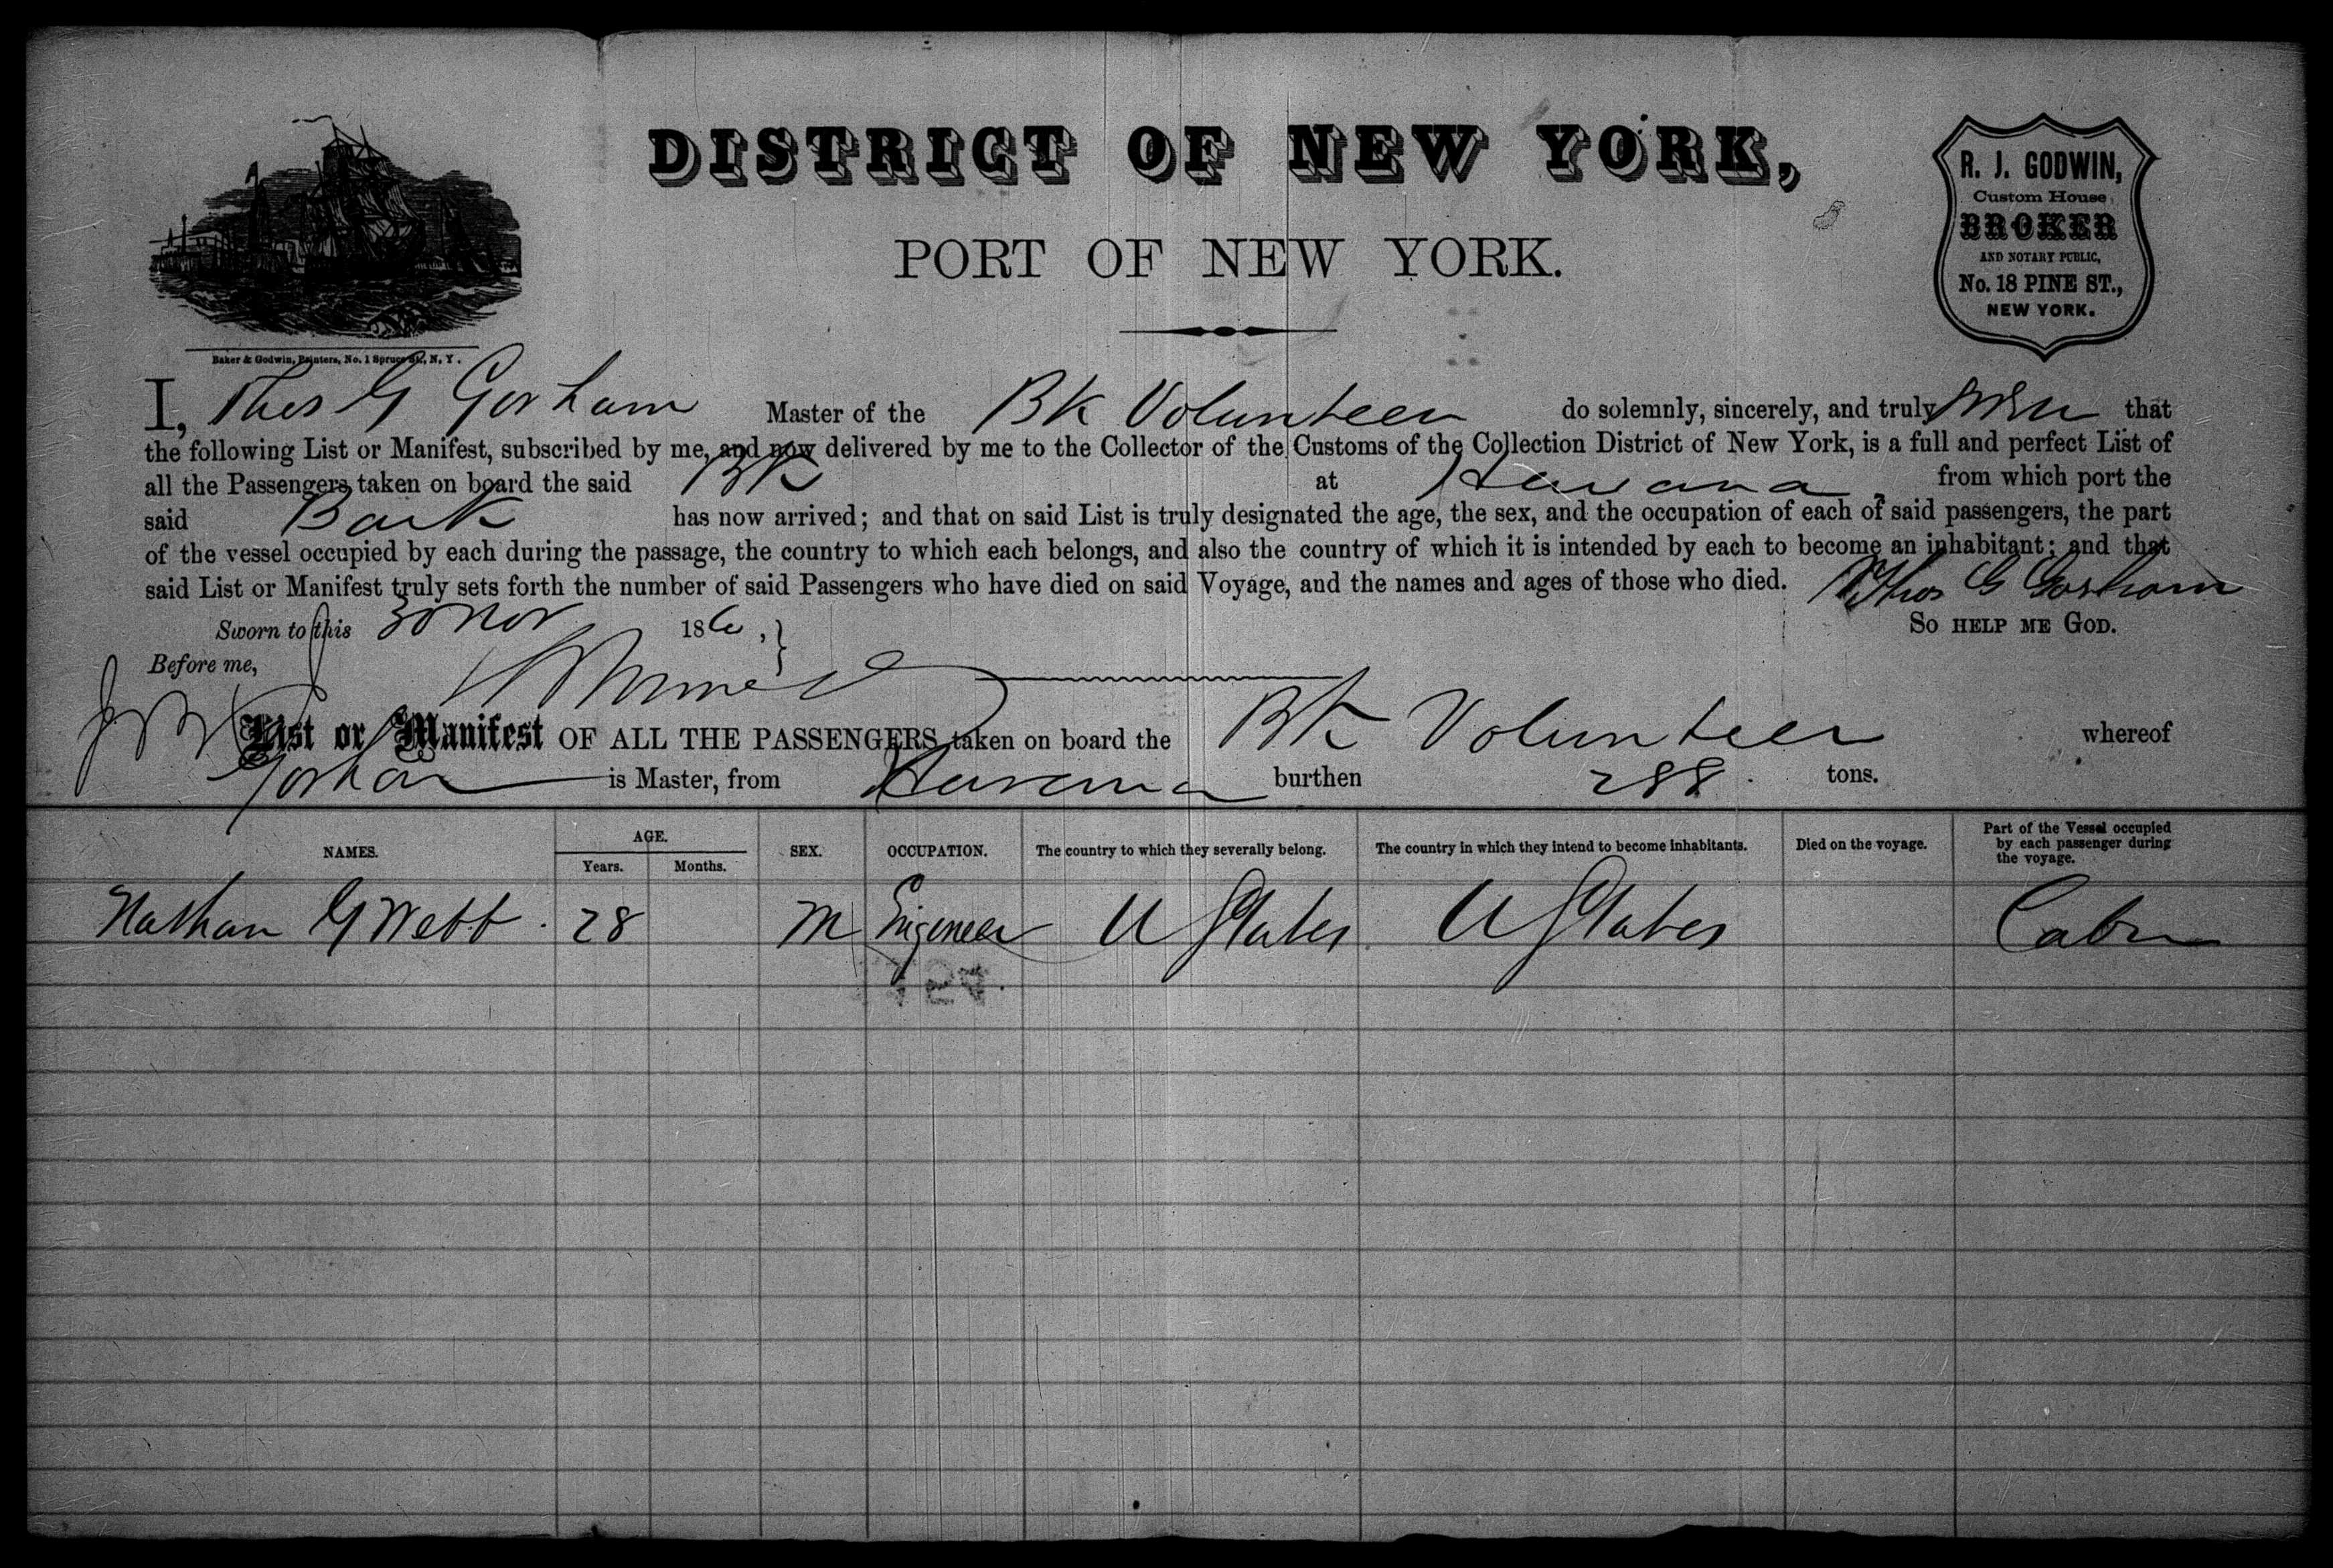 DISTRICT OF NEW YORK,
PORT OF NEW YORK.
R. J. GODWIN,
Custom House
BROKER
AND NOTARY PUBLIC,
No. 18 PINE ST.,
NEW YORK.
Baker & Godwin, Printers, No. 1 Spruce St., N. Y.
I, Thos G Gorham Master of the Bk Volunteer do solemnly, sincerely, and truly that
the following List or Manifest, subscribed by me, and now delivered by me to the Collector of the Customs of the Collection District of New York, is a full and perfect List of
all the Passengers taken on board the said Bk at Havana from which port the
said Bark has now arrived; and that on said List is truly designated the age, the sex, and the occupation of each of said passengers, the part
of the vessel occupied by each during the passage, the country to which each belongs, and also the country of which it is intended by each to become an inhabitant; and that
said List or Manifest truly sets forth the number of said Passengers who have died on said Voyage, and the names and ages of those who died. Thos G Gorham
Sworn to this 30 Nov 186 , So HELP ME GOD.
Before me,
List or Manifest OF ALL THE PASSENGERS taken on board the Bk Volunteer whereof
Gorham is Master, from Havana burthen 288 tons.
NAMES. AGE. Years. Months. SEX. OCCUPATION. The country to which they severally belong. The country in which they intend to become inhabitants. Died on the voyage. Part of the Vessel occupied by each passenger during the voyage.
Nathan G Webb 28 M Engeneer U States U States Cabin